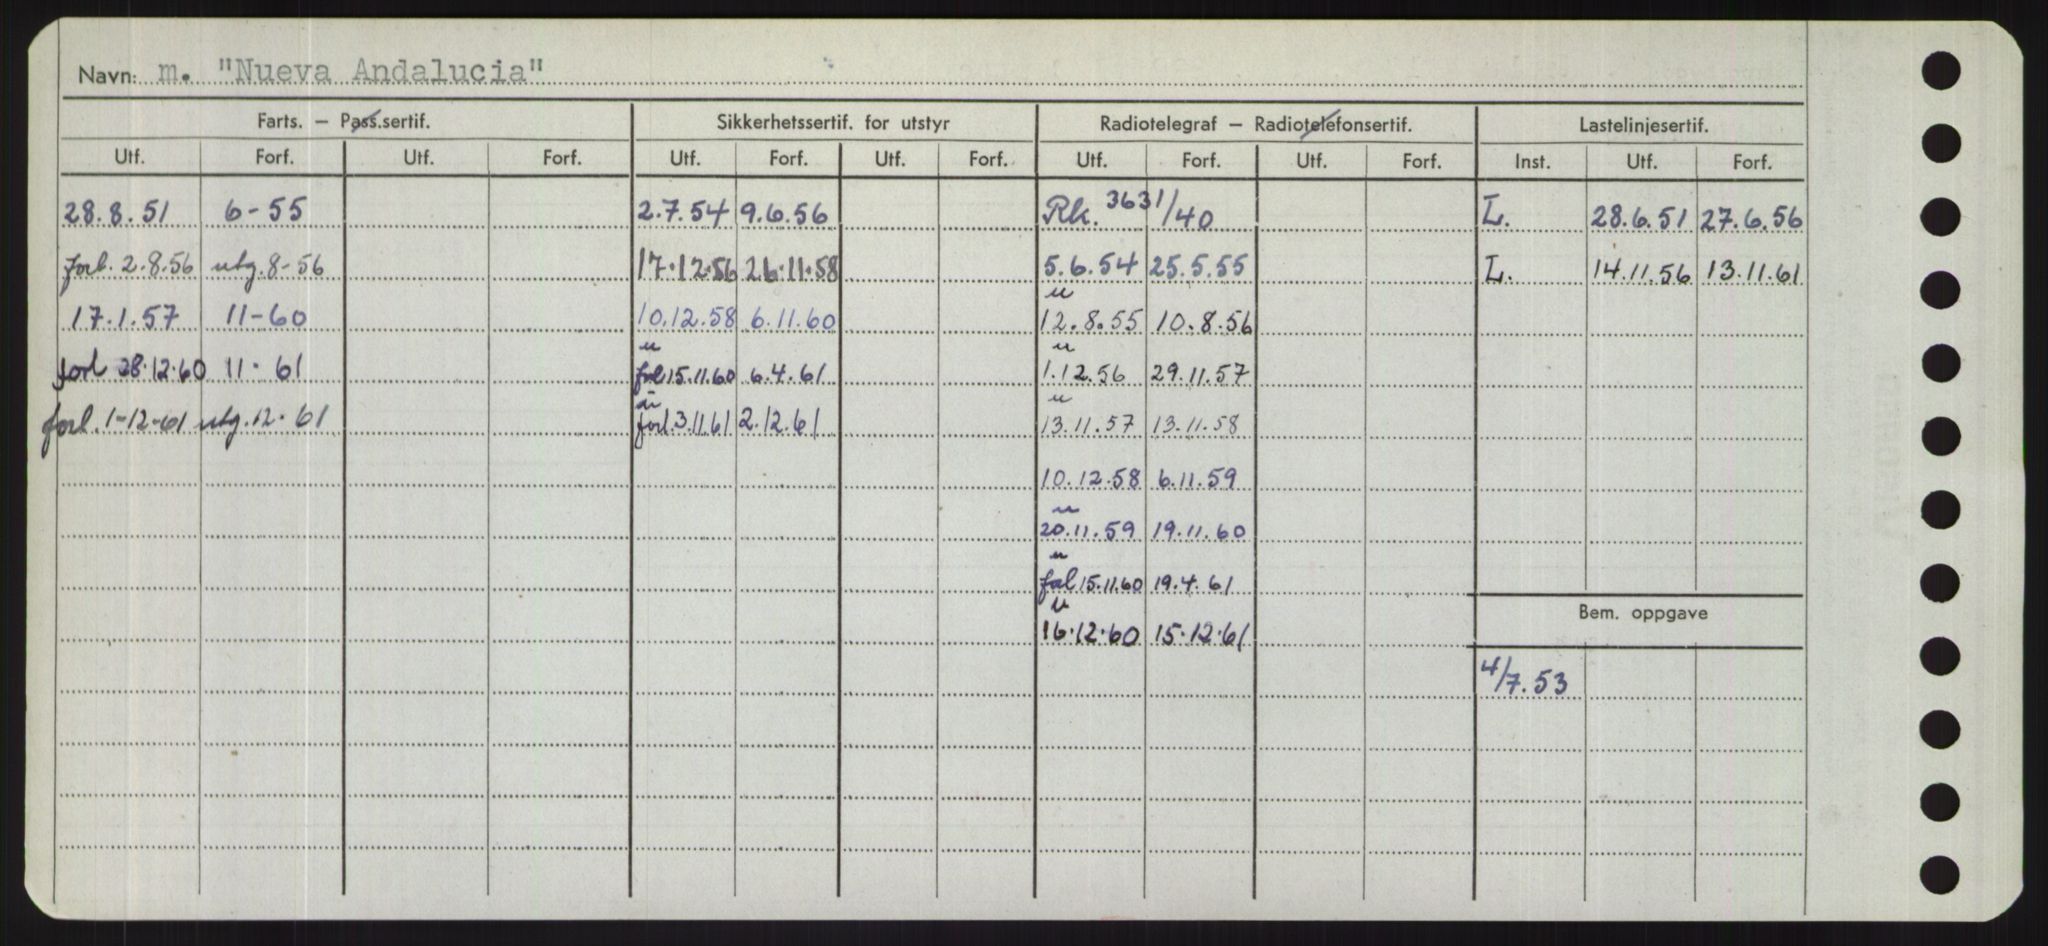 Navn: m. "Nueva Andalucia"
Farts. — Pass.sertif. Sikkerhetssertif. for utstyr Radiotelegraf — Radiotelefonsertif. Lastelinjesertif.
Utf. Forf. Utf. Forf. Utf. Forf. Utf. Forf. Utf. Forf. Utf. Forf. Inst. Utf. Forf.
28.8.51 6-55 2.7.54 9.6.56 Rk. 3631/40 L. 28.6.51 27.6.56
forl. 2.8.56 utg. 8-56 17.12.56 26.11.58 5.6.54 25.5.55 L. 14.11.56 13.11.61
17.1.57 11-60 10.12.58 6.11.60 u 12.8.55 10.8.56
forl 28.12.60 11-61 u forl 15.11.60 6.4.61 u 1.12.56 29.11.57
forl. 1-12-61 utg. 12-61 forl. 3.11.61 2.12.61 u 13.11.57 13.11.58
10.12.58 6.11.59
u 20.11.59 19.11.60
u forl 15.11.60 19.4.61
u 16.12.60 15.12.61
Bem. oppgave
4/7.53